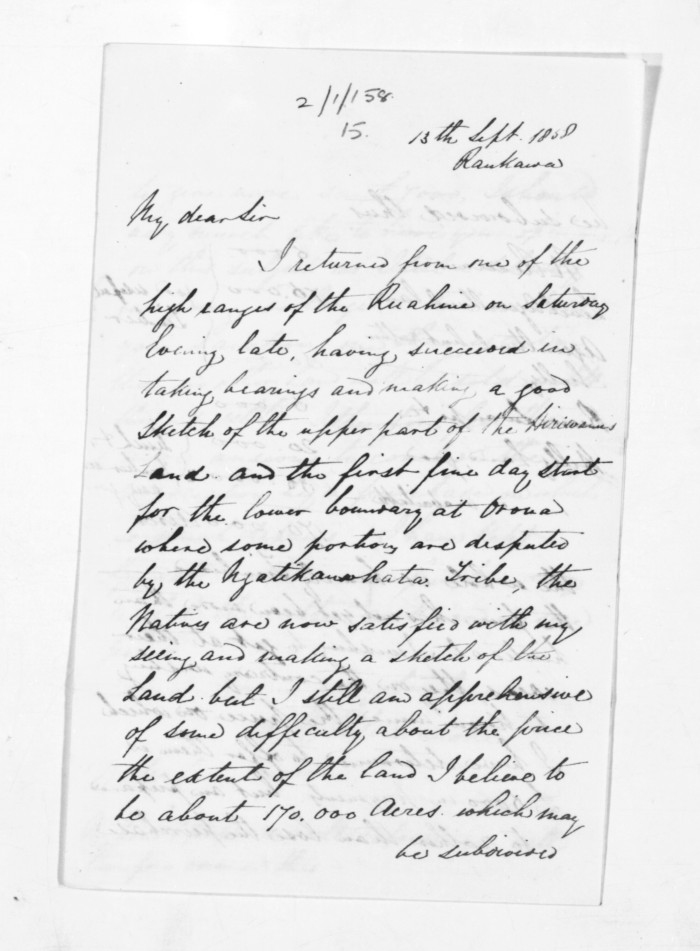 2/1/158.
15.
13th Sept. 1858
Raukawa
My dear Sir
I returned from one of the
high ranges of the Ruahine on Saturday
Evening late, having succeeded in
taking bearings and making a good
sketch of the upper part of the Hirawanus
Land and the first fine day start
for the lower boundary at Oroua
where some portions are disputed
by the Ngatikauwhata Tribe, the
Natives are now satisfied with my
seeing and making a sketch of the
Land but I still am apprehensive
of some difficulty about the price
the extent of the land I believe to
be about 170.000 Acres which may
be subdivided